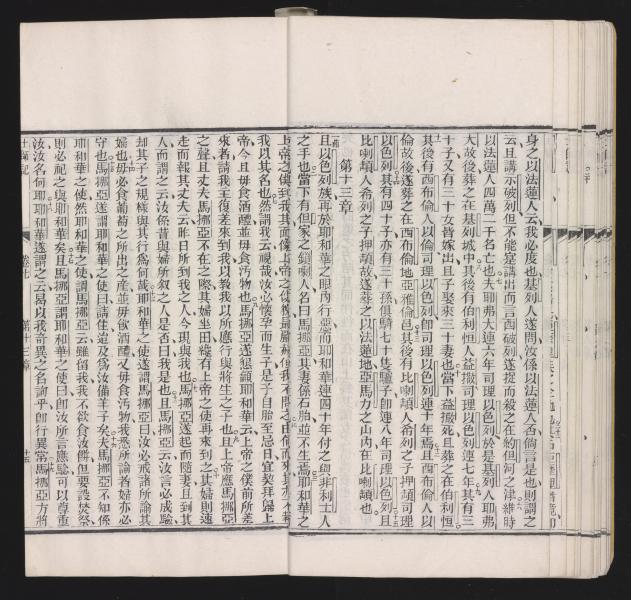 身之以法蓮人云我必度也基列人遂問汝係以法蓮人否倘言是也則謂之
云且講示破列但不能定講出而言西破列遂捉而殺之在約但河之津維時
以法蓮人四萬二千名亡也夫耶弗大連六年司理以色列於是基列人耶弗
大故後葬之在基列城中其後有伯利恒人益撒司理以色列連七年其有三
十子又有三十女皆嫁出且子娶來三十妻也當下益撒死且葬之在伯利恒
其後有西布倫人以倫司理以色列卽司理以色列連十年焉且西布倫人以
倫故後遂葬之在西布倫地亞雅倫邑其後有比喇頓人希列之子押頓司理
以色列其有四十子亦有三十孫俱騎七十隻驢子卽連八年司理以色列且
比喇頓人希列之子押頓故遂葬之以法蓮地亞馬力之山內在比喇頓也
第十三章
且以色列族再於耶和華之眼內行惡而耶和華連四十年付之與非利士人
之手也當下有但家之鎖喇人名曰馬挪亞其妻係石胎並不生焉耶和華之
我以其名也然謂我云視哉汝必懷孕而生子是子自胎至忌日宜契拜歸上
帝今且毋食酒醴並毋食汚物也馬挪亞遂懇籲耶和華云上帝之僕前所差
來者請我主復差來到我以教我以所應行與將生之子也且上帝應馬挪亞
之聲且丈夫馬挪亞不在之際其婦坐田獨有上帝之使再來到之其婦則速
走而報其丈夫云昨日所到我之人今現與我也馬挪亞遂起而隨妻且到其
人而謂之云汝係昔與婦所叙之人是否曰我是也且馬挪亞云汝言必成驗
却其子之規條與其行爲何哉耶和華之使遂謂馬挪亞曰汝必戒諸所諭其
婦也毋必食葡萄之所出之產並毋飲酒醴又毋食汚物我悉所諭者婦亦必
守也馬挪亞遂謂耶和華之使曰請住這及爲汝備羊子矣夫馬挪亞不知係
耶和華之使然耶和華之使謂馬挪亞云雖留我我不欲食汝饌但要設焚祭
則必祀之與耶和華矣且馬挪亞謂耶和華之使曰卽汝所言應驗可以尊重
汝汝名何耶耶和華遂謂之云曷以我奇異之名諭乎卽行異常馬挪亞方將
士師記
卷七
第十三章